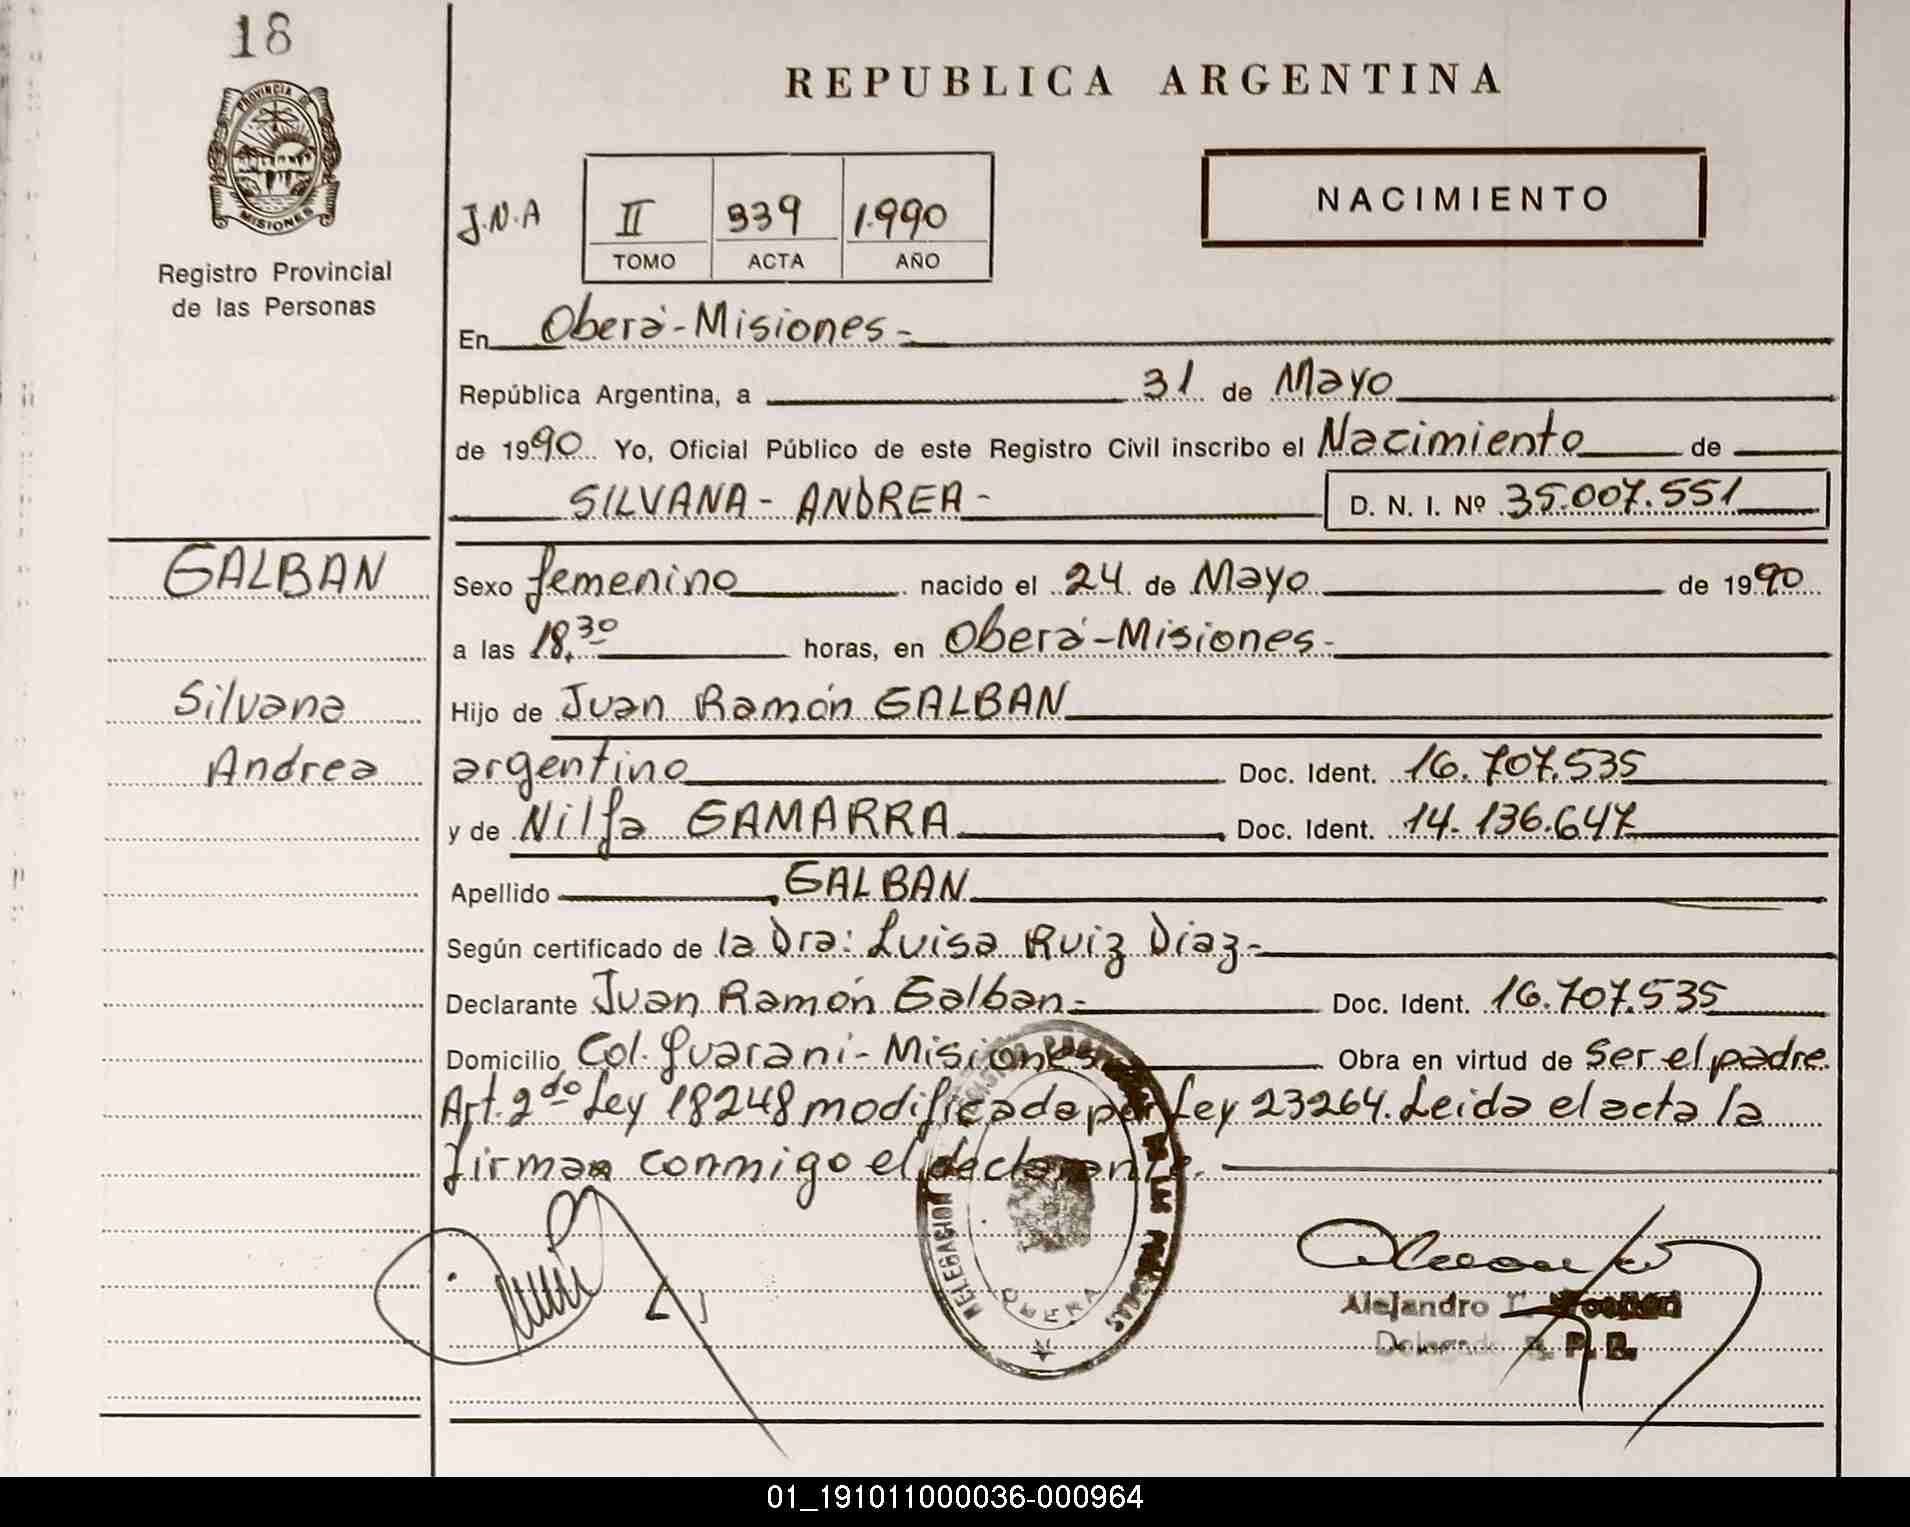 18
PROVINCIA DE
MISIONES
Registro Provincial
de las Personas
REPUBLICA ARGENTINA
NACIMIENTO
J.N.A
II 939 1.990
TOMO ACTA AÑO
En Oberá-Misiones-
República Argentina, a 31 de Mayo
de 1990 Yo, Oficial Público de este Registro Civil inscribo el Nacimiento de
SILVANA - ANDREA - D. N. I. Nº 35.007.551
GALBAN
Silvana
Andrea
Sexo femenino nacido el 24 de Mayo de 1990
a las 18,30 horas, en Oberá-Misiones-
Hijo de Juan Ramón GALBAN
argentino Doc. Ident. 16.707.535
y de Nilfa GAMARRA Doc. Ident. 14.136.647
Apellido GALBAN
Según certificado de la Dra: Luisa Ruiz Diaz-
Declarante Juan Ramón Galban- Doc. Ident. 16.707.535
Domicilio Col. Guaraní-Misiones Obra en virtud de ser el padre.
Art. 2do Ley 18248 modificada por Ley 23264. Leida el acta la
firma conmigo el declarante.
DELEGACION DE LAS PERSONAS
OBERA
Alejandro
Delegado R. P. P.
01_191011000036-000964